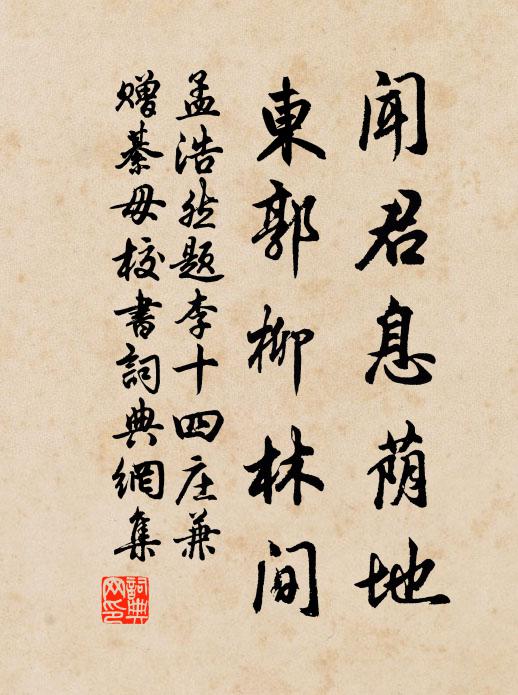 闻君息荫地
東郭柳林间
孟浩然题李十四庄兼
赠綦毋校書詞典網集
詞典网印